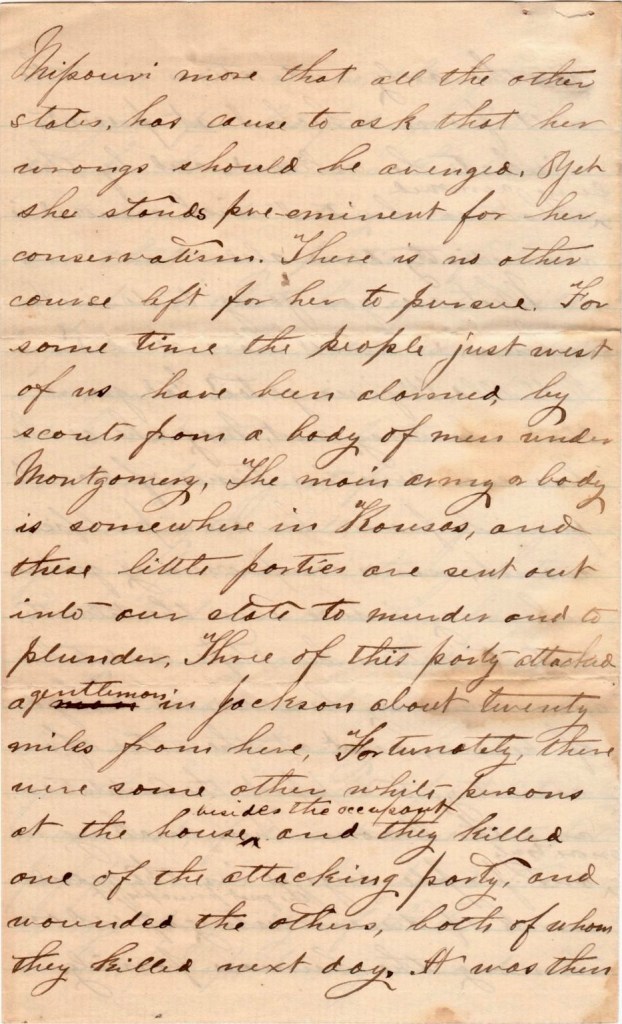 Missouri more that all the other
states, has cause to ask that her
wrongs should be avenged. Yet
she stands pre-eminent for her
conservatism. There is no other
course left for her to pursue. For
some time the people just west
of us have been alarmed, by
scouts from a body of men under
Montgomery. The main army or body
is somewhere in Kansas, and
these little parties are sent out
into our state to murder and to
plunder. Three of this party attacked
a gentleman in Jackson about twenty
miles from here, Fortunately, there
were some other white persons
at the house besides the occupant and they killed
one of the attacking party, and
wounded the others, both of whom
they killed next day. It was then